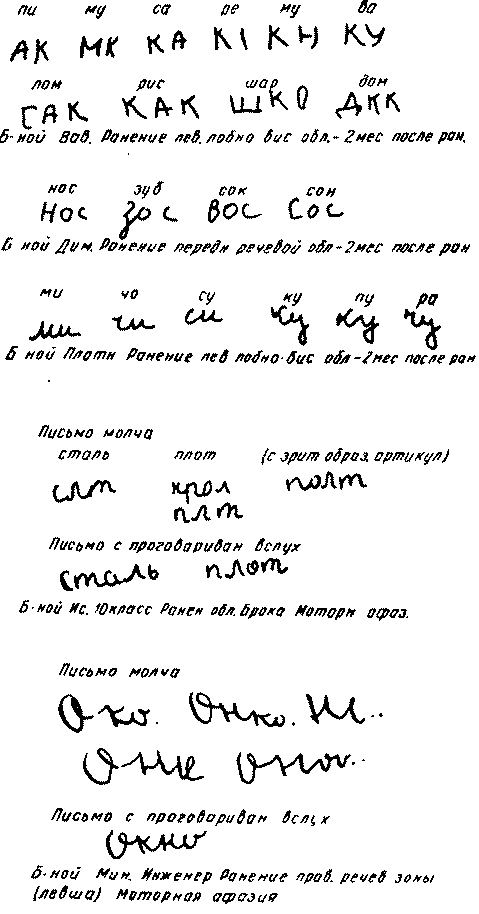 пи му са ре му ва
АК МК КА КІ КН КУ
лом рис шар дом
САК КАК ШКО ДКК
Б-ной Вав. Ранение лев. лобно вис обл.- 2мес после ран.
нос зуб сок сон
Нос Зос Вос Сос
Б ной Дим. Ранение передн речевой обл-2мес после ран
ми чо су ку пу ра
ми чи си ку ку чу
Б ной Плотн Ранение лев лобно-вис обл-2мес после ран
Письмо молча
сталь плот (с зрит образ. артикул)
слт крол полт
плт
Письмо с проговариван вслух
сталь плот
Б-ной Ис. 10класс Ранен обл. Брока Моторн афаз.
Письмо молча
Око. Онко. Ни..
Оне Оног..
Письмо с проговариван вслух
окно
Б-ной Мин. Инженер Ранение прав. речев зоны
(левша) Моторная афазия